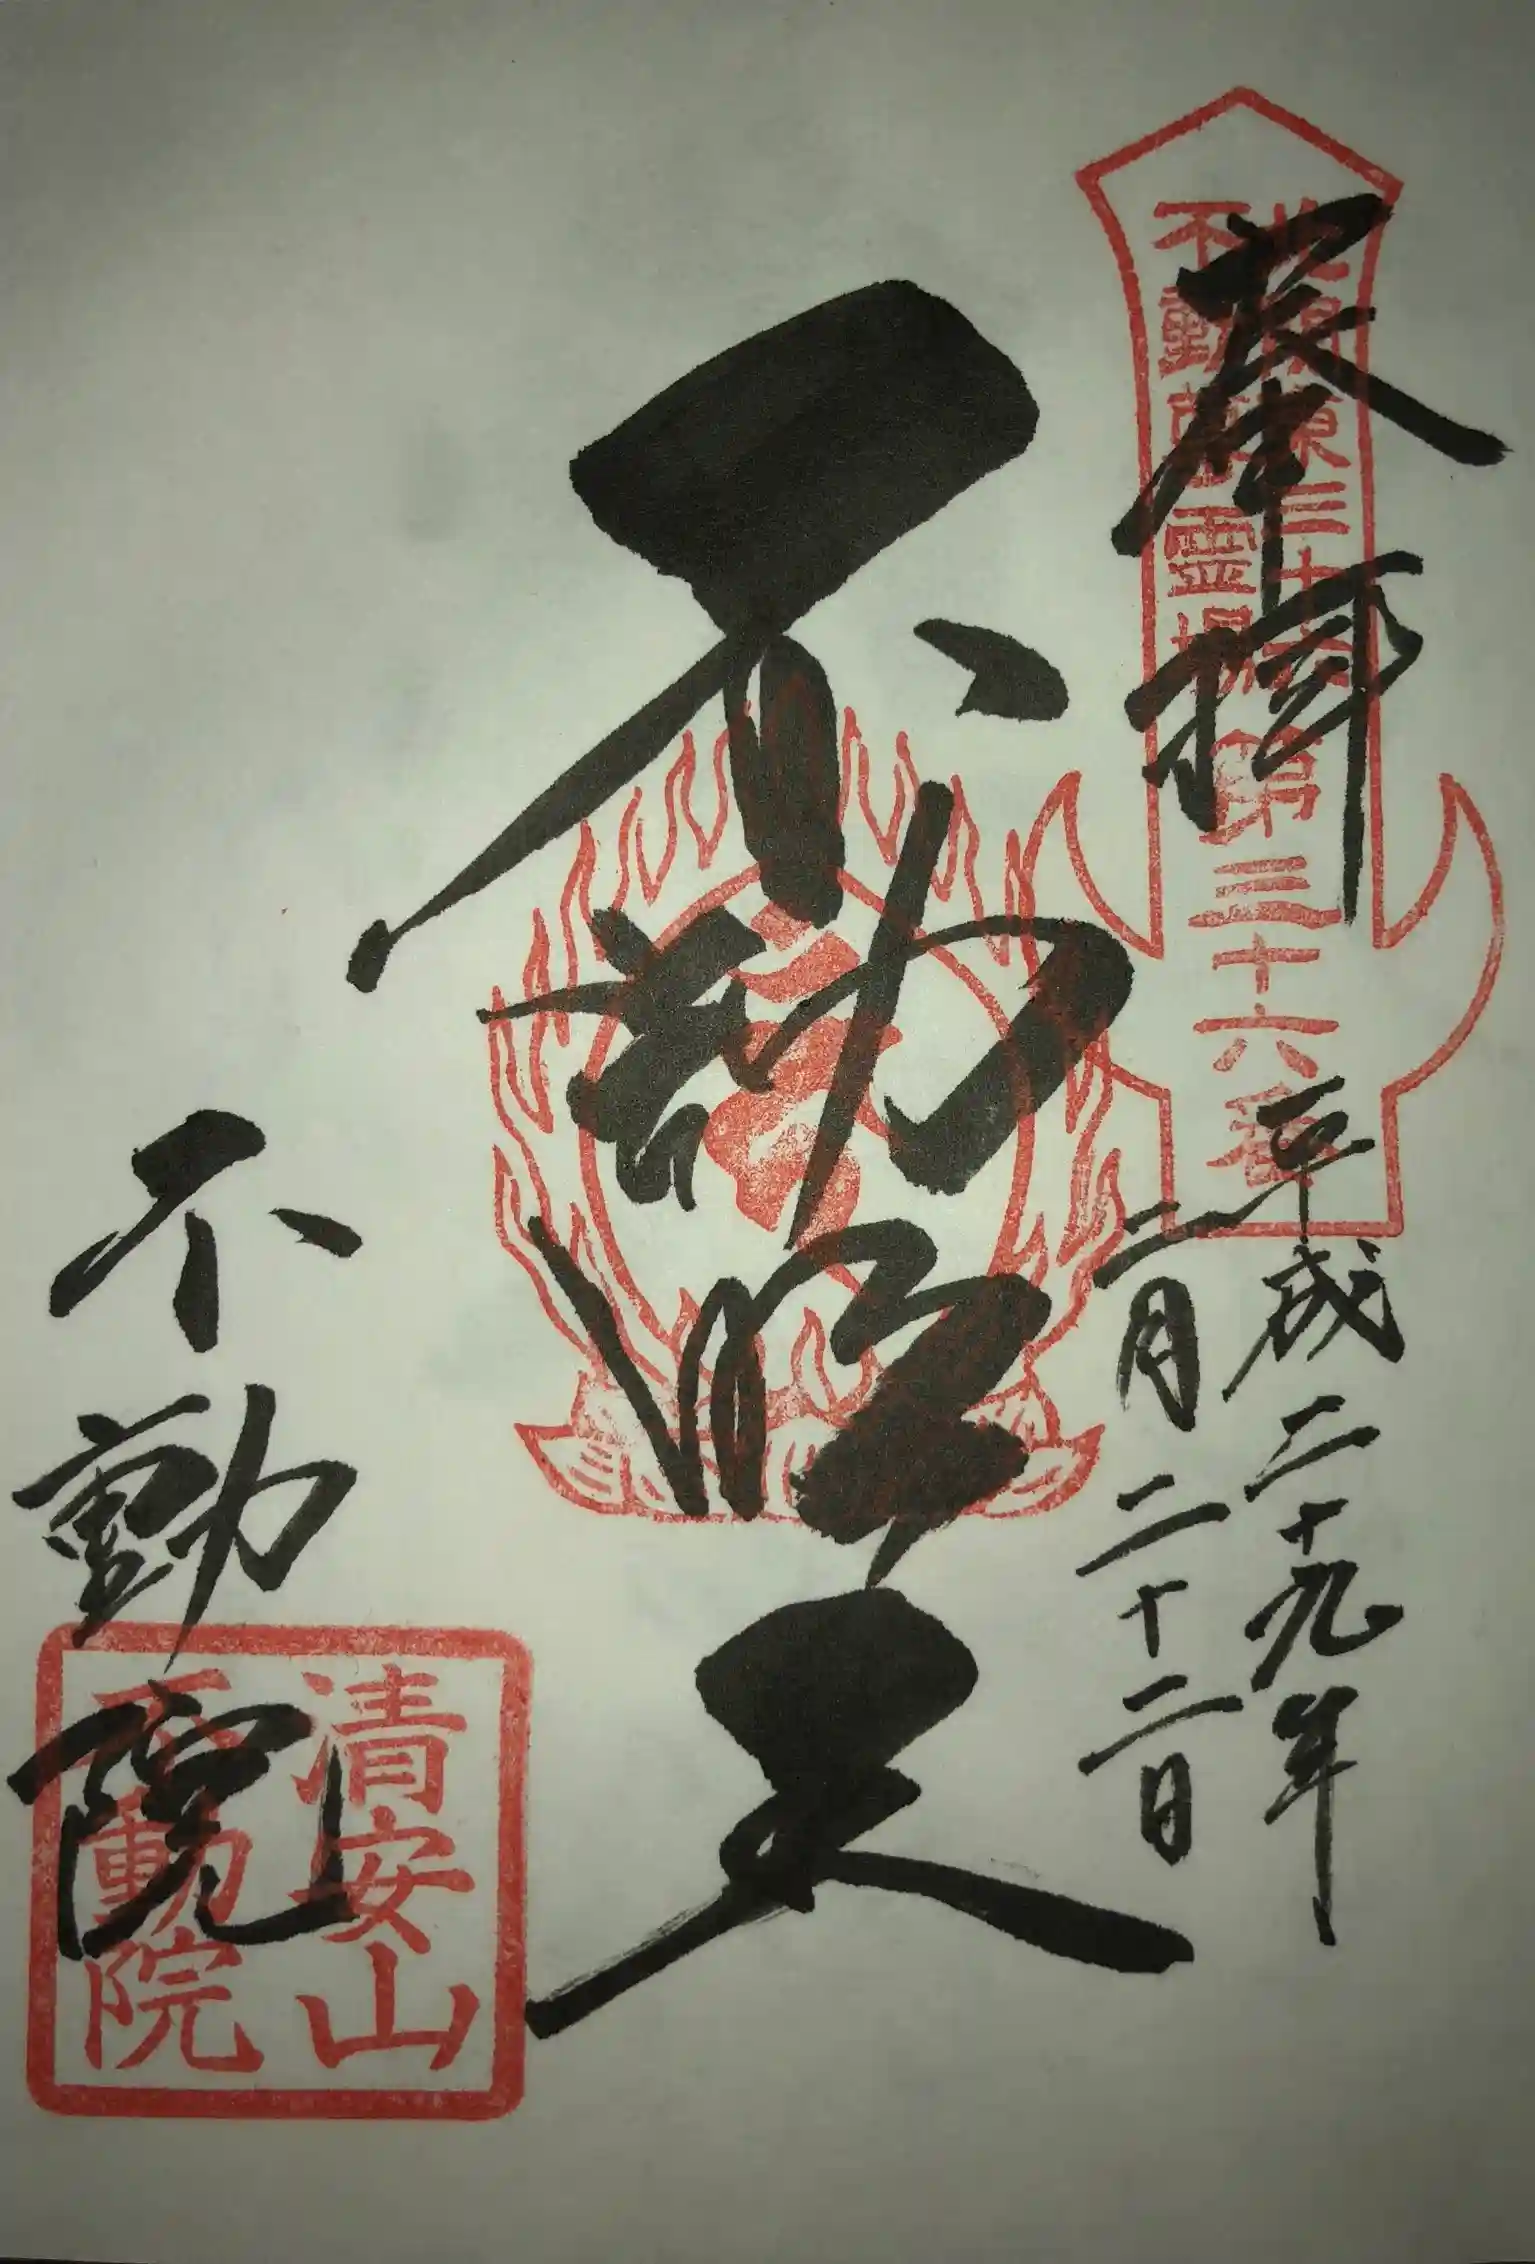 奉拝
北関東三十六
不動尊霊場
第三十六番
平成二十九年
二月二十二日
不動
不動院
清安山
不動院